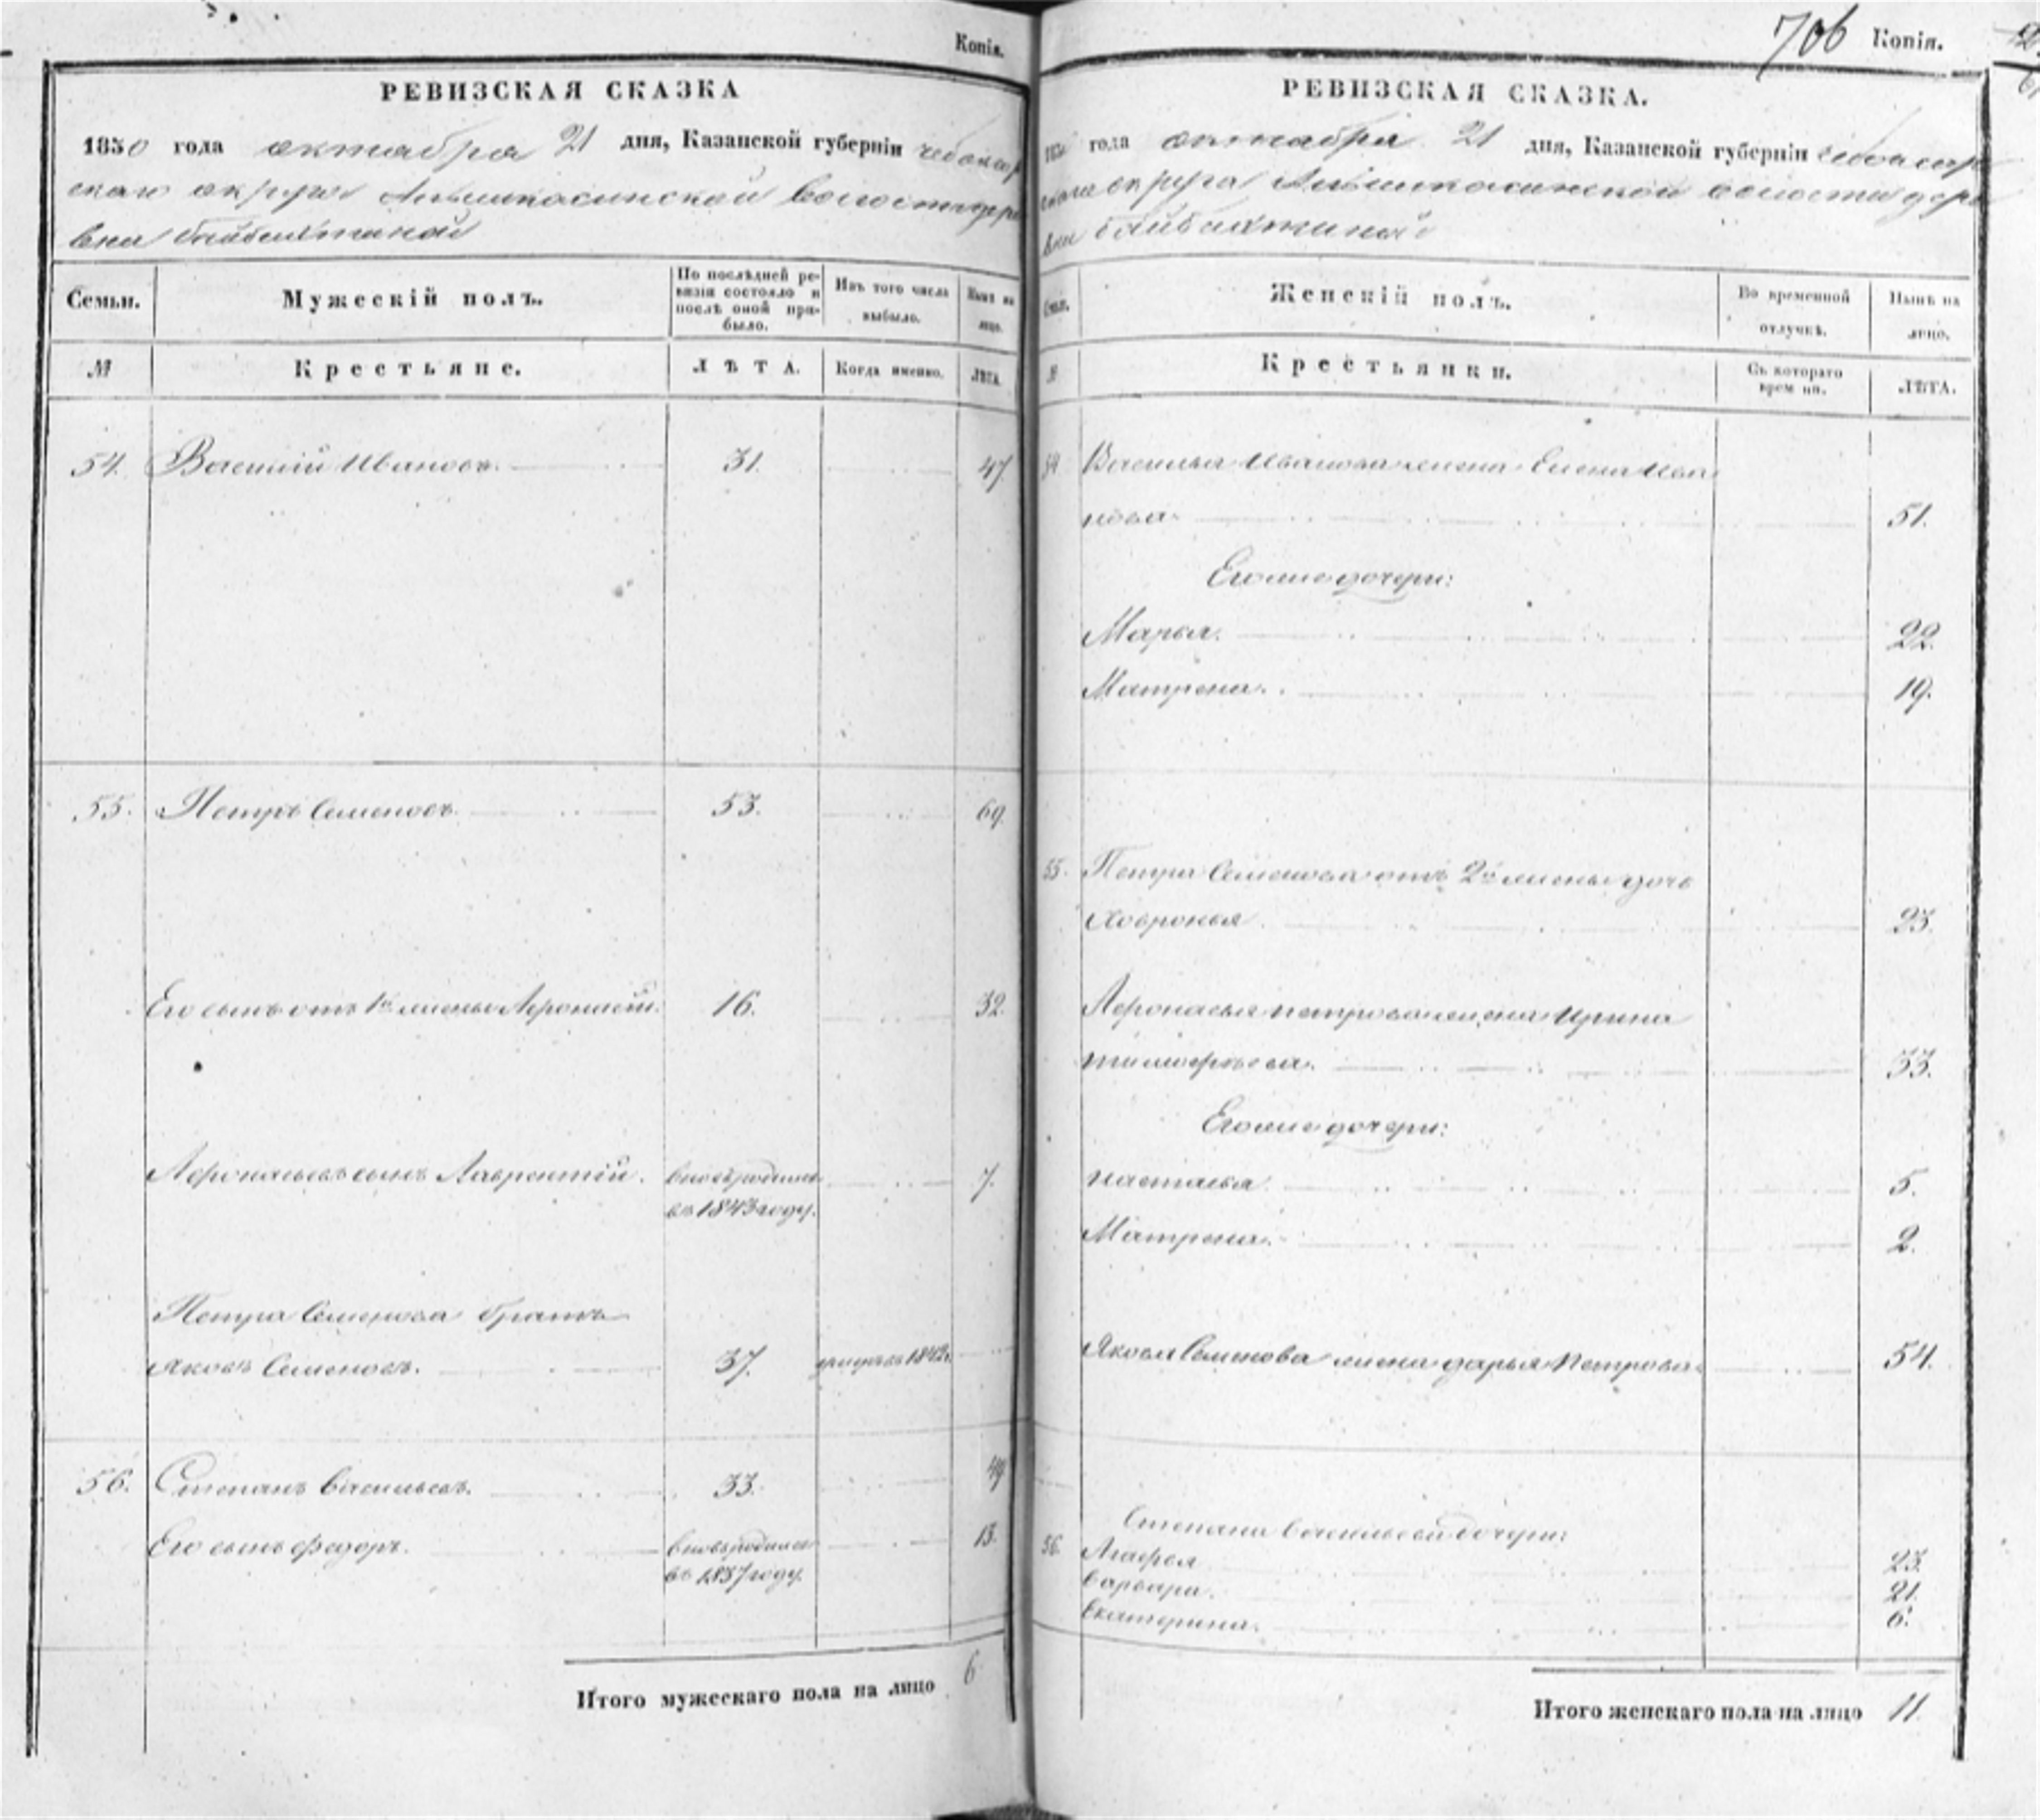 Копія.
РЕВИЗСКАЯ СКАЗКА
1850 года октабря 21 дня, Казанской губерніи чебоксар
скаго округа Алымкасинской волости дере
вни байбахтиной
Семьи. Мужескій полъ. По послѣдней ре- Изъ того числа Нынѣ на
визіи состояло и выбыло. лицо.
послѣ оной при-
было.
№ Крестьяне. ЛѢТА. Когда именно. ЛѢТА.
54. Василій Ивановъ. 31. 47.
55. Петръ Семеновъ. 53. 69.
Его сынъ отъ 1й жены Афонасій. 16. 32.
Афонасьевъ сынъ Лаврентій. вновь родился 7.
въ 1843 году.
Петра Семенова братъ
яковъ Семеновъ. 37.
56. Степанъ Васильевъ. 33. 49
Его сынъ федоръ. вновь родился 13.
въ 1837 году.
Итого мужескаго пола на лицо 6.
706 Копія.
РЕВИЗСКАЯ СКАЗКА.
185 года октабря 21 дня, Казанской губерніи чебоксар
скаго округа Алымкасинской волости дере
вни байбахтиной
Семьи. Женскій полъ. Во временной Нынѣ на
отлучкѣ. лицо.
№ Крестьянки. Съ котораго ЛѢТА.
врем ни.
54 Василья Иванова жена Елена Ива
нова. 51.
Его же дочери:
Марья. 22.
Матрена. 19.
55. Петра Семенова отъ 2й жены дочь
Ховронья. 23.
Афонасья петрова жена Ирина
тимофѣева. 33.
Его же дочери:
настасья. 5.
Матрена. 2.
Якова Семенова жена дарья Петрова. 54.
Степана Васильева дочери:
56. Агафья 23.
варвара. 21.
Екатерина. 6.
Итого женскаго пола на лицо 11.